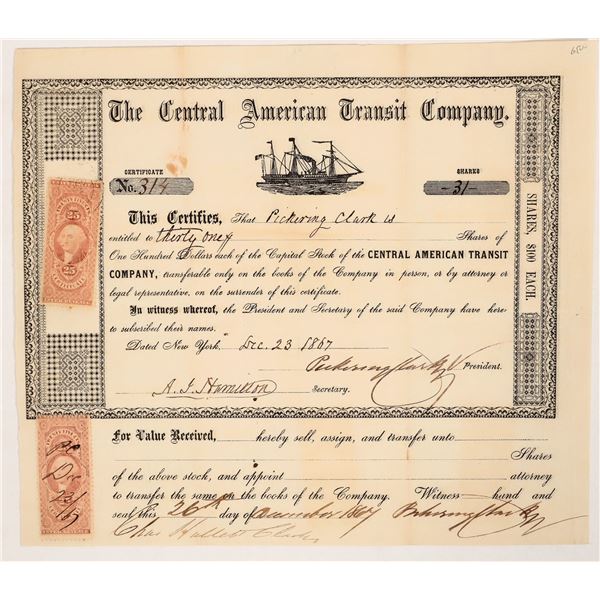 The Central American Transit Company.
CERTIFICATE
No. 314
SHARES
-31-
This Certifies, That Pickering Clark is
entitled to thirty one Shares of
One Hundred Dollars each of the Capital Stock of the CENTRAL AMERICAN TRANSIT
COMPANY, transferable only on the books of the Company in person, or by attorney or
legal representative, on the surrender of this certificate.
In witness whereof, the President and Secretary of the said Company have here
to subscribed their names.
Dated New York. Dec. 23 1867
Pickering Clark President.
Secretary.
SHARES, $100 EACH.
25
25
For Value Received, hereby sell, assign, and transfer unto
Shares
of the above stock, and appoint attorney
to transfer the same on the books of the Company. Witness hand and
seal this 26 day of December 1867 Pickering Clark
Chas Hallett Clark